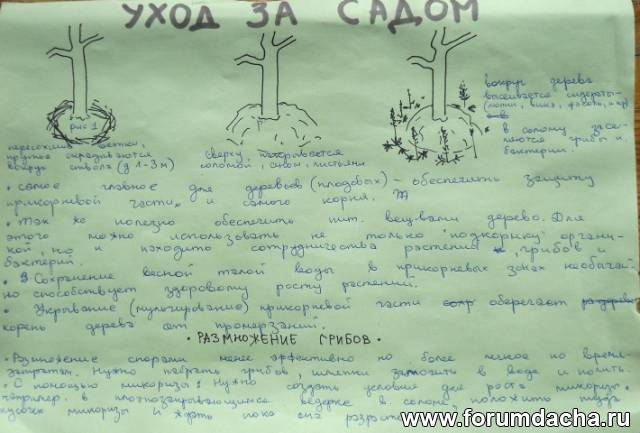 УХОД ЗА САДОМ
рис 1
пересохшие ветки,
прутья складываются
вокруг ствола (d 1-3 м)
сверху накрывается
соломой, сеном, листьями
вокруг дерева
высеваются сидераты-
(люпин, вика, фасоль, и др)
в солому засе-
ляются грибы и
бактерии.
• самое главное для деревьев (плодовых) - обеспечить защиту
прикорневой части, и самого корня.
• Так же полезно обеспечить пит. вещ-вами дерево. Для
этого можно использовать не только "подкормку" органи-
кой, но и находить сотрудничества растений, грибов и
бактерий.
• Сохранение весной талой воды в прикорневых зонах необычай-
но способствует здоровому росту растений.
• Укрывание (мульчирование) прикорневой части оберегает
корень дерева от промерзаний.
• РАЗМНОЖЕНИЕ ГРИБОВ •
• Размножение спорами менее эффективно но более легкое по время-
затратам. Нужно набрать грибов, шляпки замочить в воде и полить.
• С помощью микоризы: Нужно создать условия для роста микоризы.
например в плотнозакрывающимся ведерке в солому положить
кусочек микоризы и ждать пока она разрастется
www.forumdacha.ru